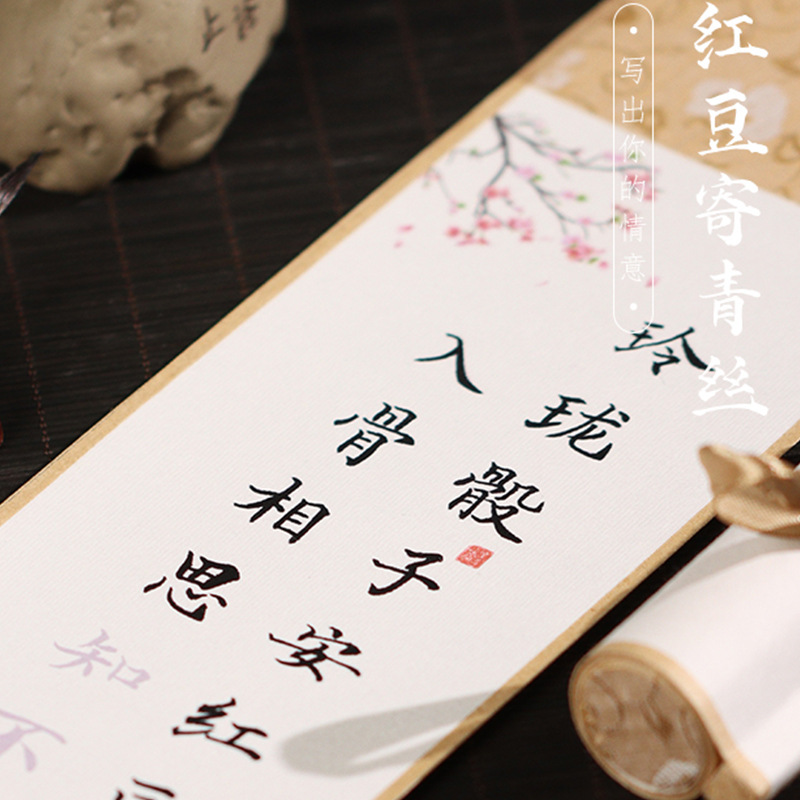 红豆寄青丝
·写出你的情意·
玲珑骰子安红
入骨相思知不